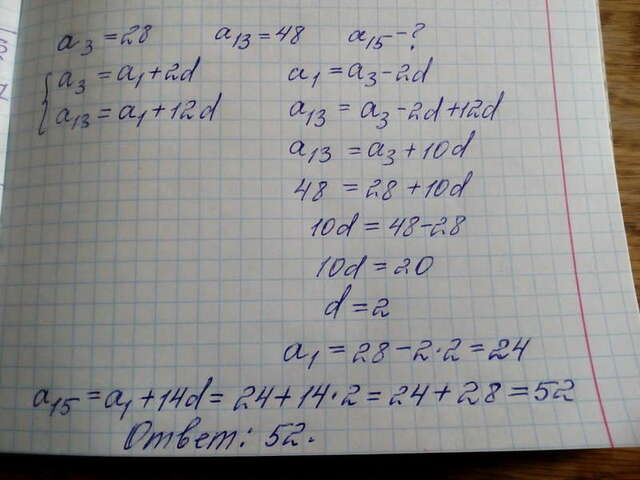 a₃ = 28 a₁₃ = 48 a₁₅ - ?
{ a₃ = a₁ + 2d a₁ = a₃ - 2d
a₁₃ = a₁ + 12d a₁₃ = a₃ - 2d + 12d
a₁₃ = a₃ + 10d
48 = 28 + 10d
10d = 48 - 28
10d = 20
d = 2
a₁ = 28 - 2·2 = 24
a₁₅ = a₁ + 14d = 24 + 14·2 = 24 + 28 = 52
Ответ: 52.